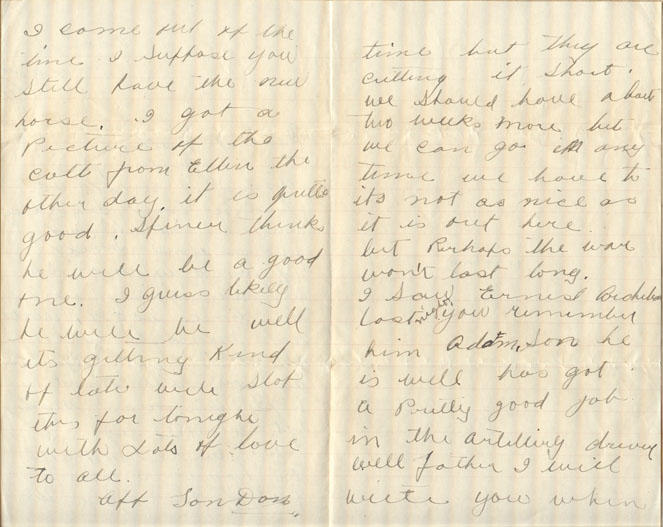 time but they are
cutting it short.
we should have about
two weeks more but
we can go at any
time we have to
its not as nice as
it is out here.
but Perhaps the war
won't last long.
I Saw Ernest
last night you remember
him Adam, Son he
is well has got
a Pritty good job
in the artilliry driving
well father I will
write you when
I come out of the
line I suppose you
Still have the new
horse. I got a
Picture of the
colt from Ellen the
other day. it is quite
good. Spiner thinks
he will be a good
one. I guess likely
he will be well
its getting Kind
of late will Stop
this for tonight
with Lots of love
to all.
Aff Son Don